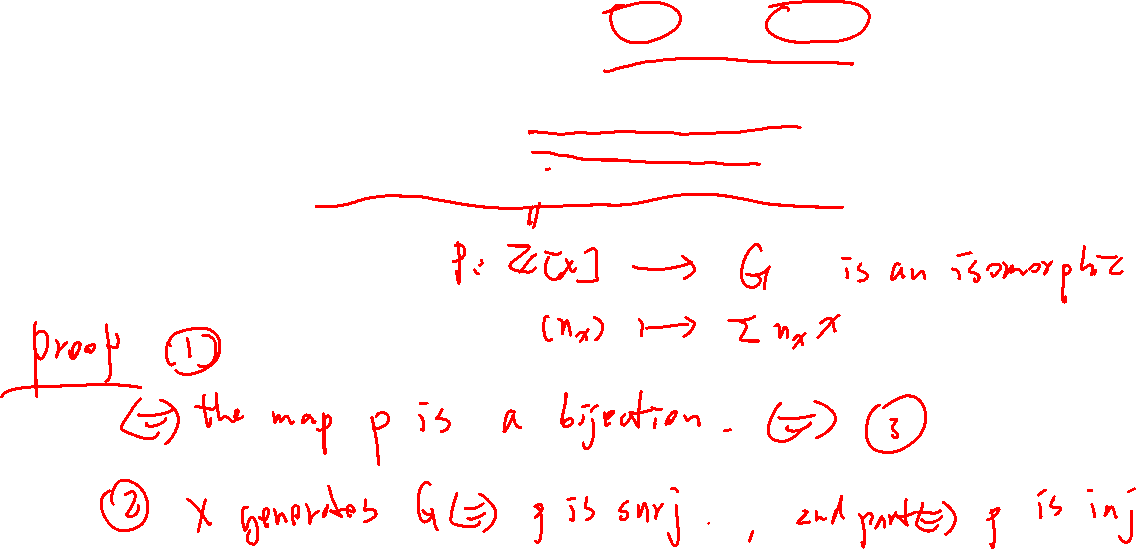 p: ℤ[x] → G is an isomorphic
(n_x) ↦ Σ n_x x
proof ①
⇔ the map p is a bijection. ⇔ ③
② X generates G ⇔ p is surj., 2nd part ⇔ p is inj